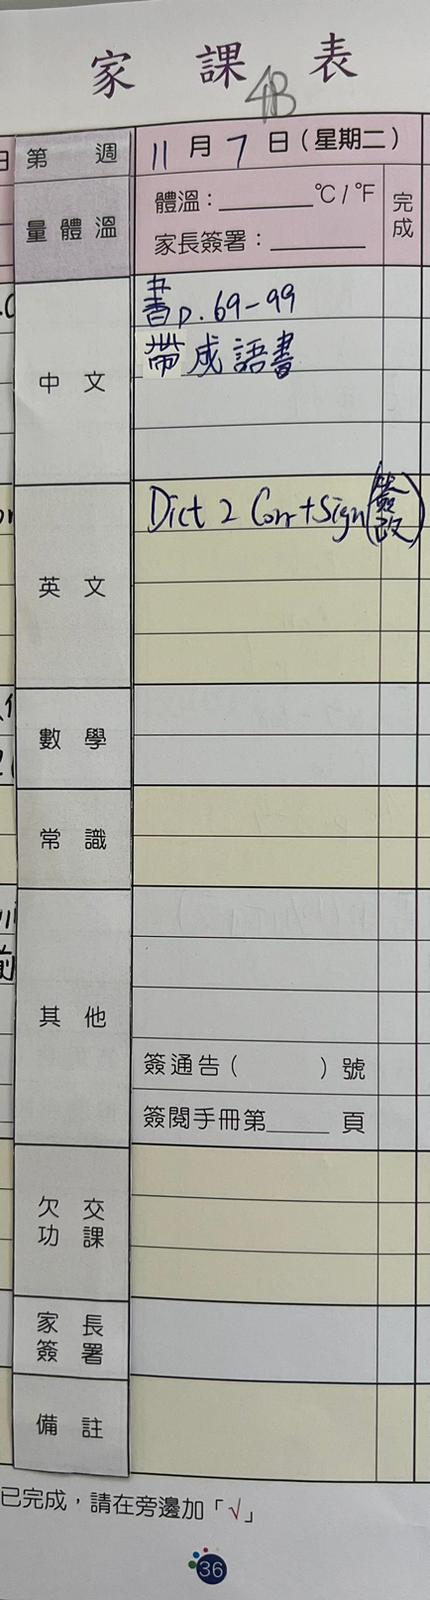 家課表
4B
第 週
11月7日(星期二)
量體溫
體溫:________℃/℉
家長簽署:________
完成
中文
書p.69-99
帶成語書
英文
Dict 2 Corr+Sign(簽改)
數學
常識
其他
簽通告( )號
簽閱手冊第_____頁
欠交功課
家長簽署
備註
已完成,請在旁邊加「√」
36